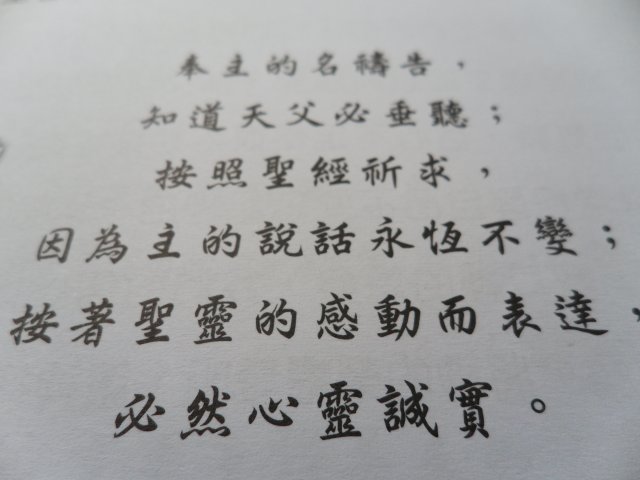 奉主的名禱告，
知道天父必垂聽；
按照聖經祈求，
因為主的說話永恆不變；
按著聖靈的感動而表達，
必然心靈誠實。